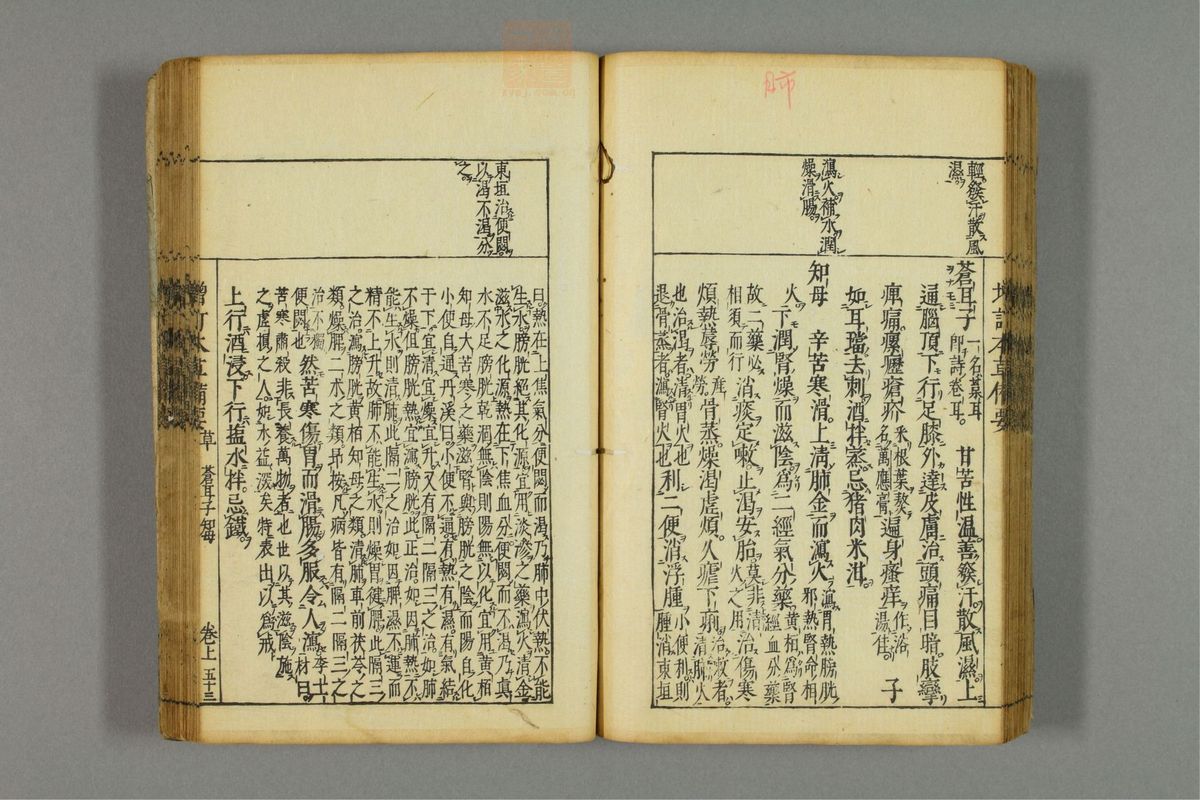 肺
輕發汗散風
濕
瀉火補水潤
燥滑腸
蒼耳子 一名葈耳 即詩卷耳 甘苦性温善發汗散風濕上
通腦頂下行足膝外達皮膚治頭痛目暗肢攣
痺痛瘰癧瘡疥 采根葉熬名萬應膏 遍身瘙痒 作浴湯佳 子
如耳璫去刺酒拌蒸忌猪肉米泔
知母 辛苦寒滑上清肺金而瀉火 瀉胃熱膀胱邪熱腎命相
火 下潤腎燥而滋陰爲二經氣分藥 黄栢爲腎經血分藥
故二藥必相須而行 消痰定嗽止渴安胎 莫非清火之用 治傷寒
煩熱蓐勞 産勞 骨蒸燥渴虚煩久瘧下痢 清肺火
也治渴者清胃火也退骨蒸者瀉腎火也 利二便消浮腫 小便利則腫消東垣
東垣治便閟
以渴不渴分
之
曰熱在上焦氣分便閟而渴乃肺中伏熱不能
生水膀胱絶其化源宜用淡滲之藥瀉火清金
滋水之化源熱在下焦血分便閟而不渴乃真
水不足膀胱乾涸無陰則陽無以化宜用黄栢
知母大苦寒之藥滋腎與膀胱之陰而陽自化
小便自通丹溪曰小便不通有熱有濕有氣結
于下宜清宜燥宜升又有隔二隔三之治如肺
不燥但膀胱熱宜瀉膀胱此正治如因肺熱不
能生水則清肺此隔二之治如因脾濕不運而
精不上升故肺不能生水則燥胃健脾此隔三
之治瀉膀胱黄栢知母之類清肺車前茯苓之
類燥脾二朮之類昂按凡病皆有隔二隔三之
治不獨便閟也 然苦寒傷胃而滑腸多服令人瀉 李士材曰
苦寒肅殺非長養萬物者也世以其滋陰施
之虚損之人如水益深矣特表出以爲戒
上行酒浸下行塩水拌忌鐵
增訂本草備要 草 蒼耳子 知母 卷上 五十三